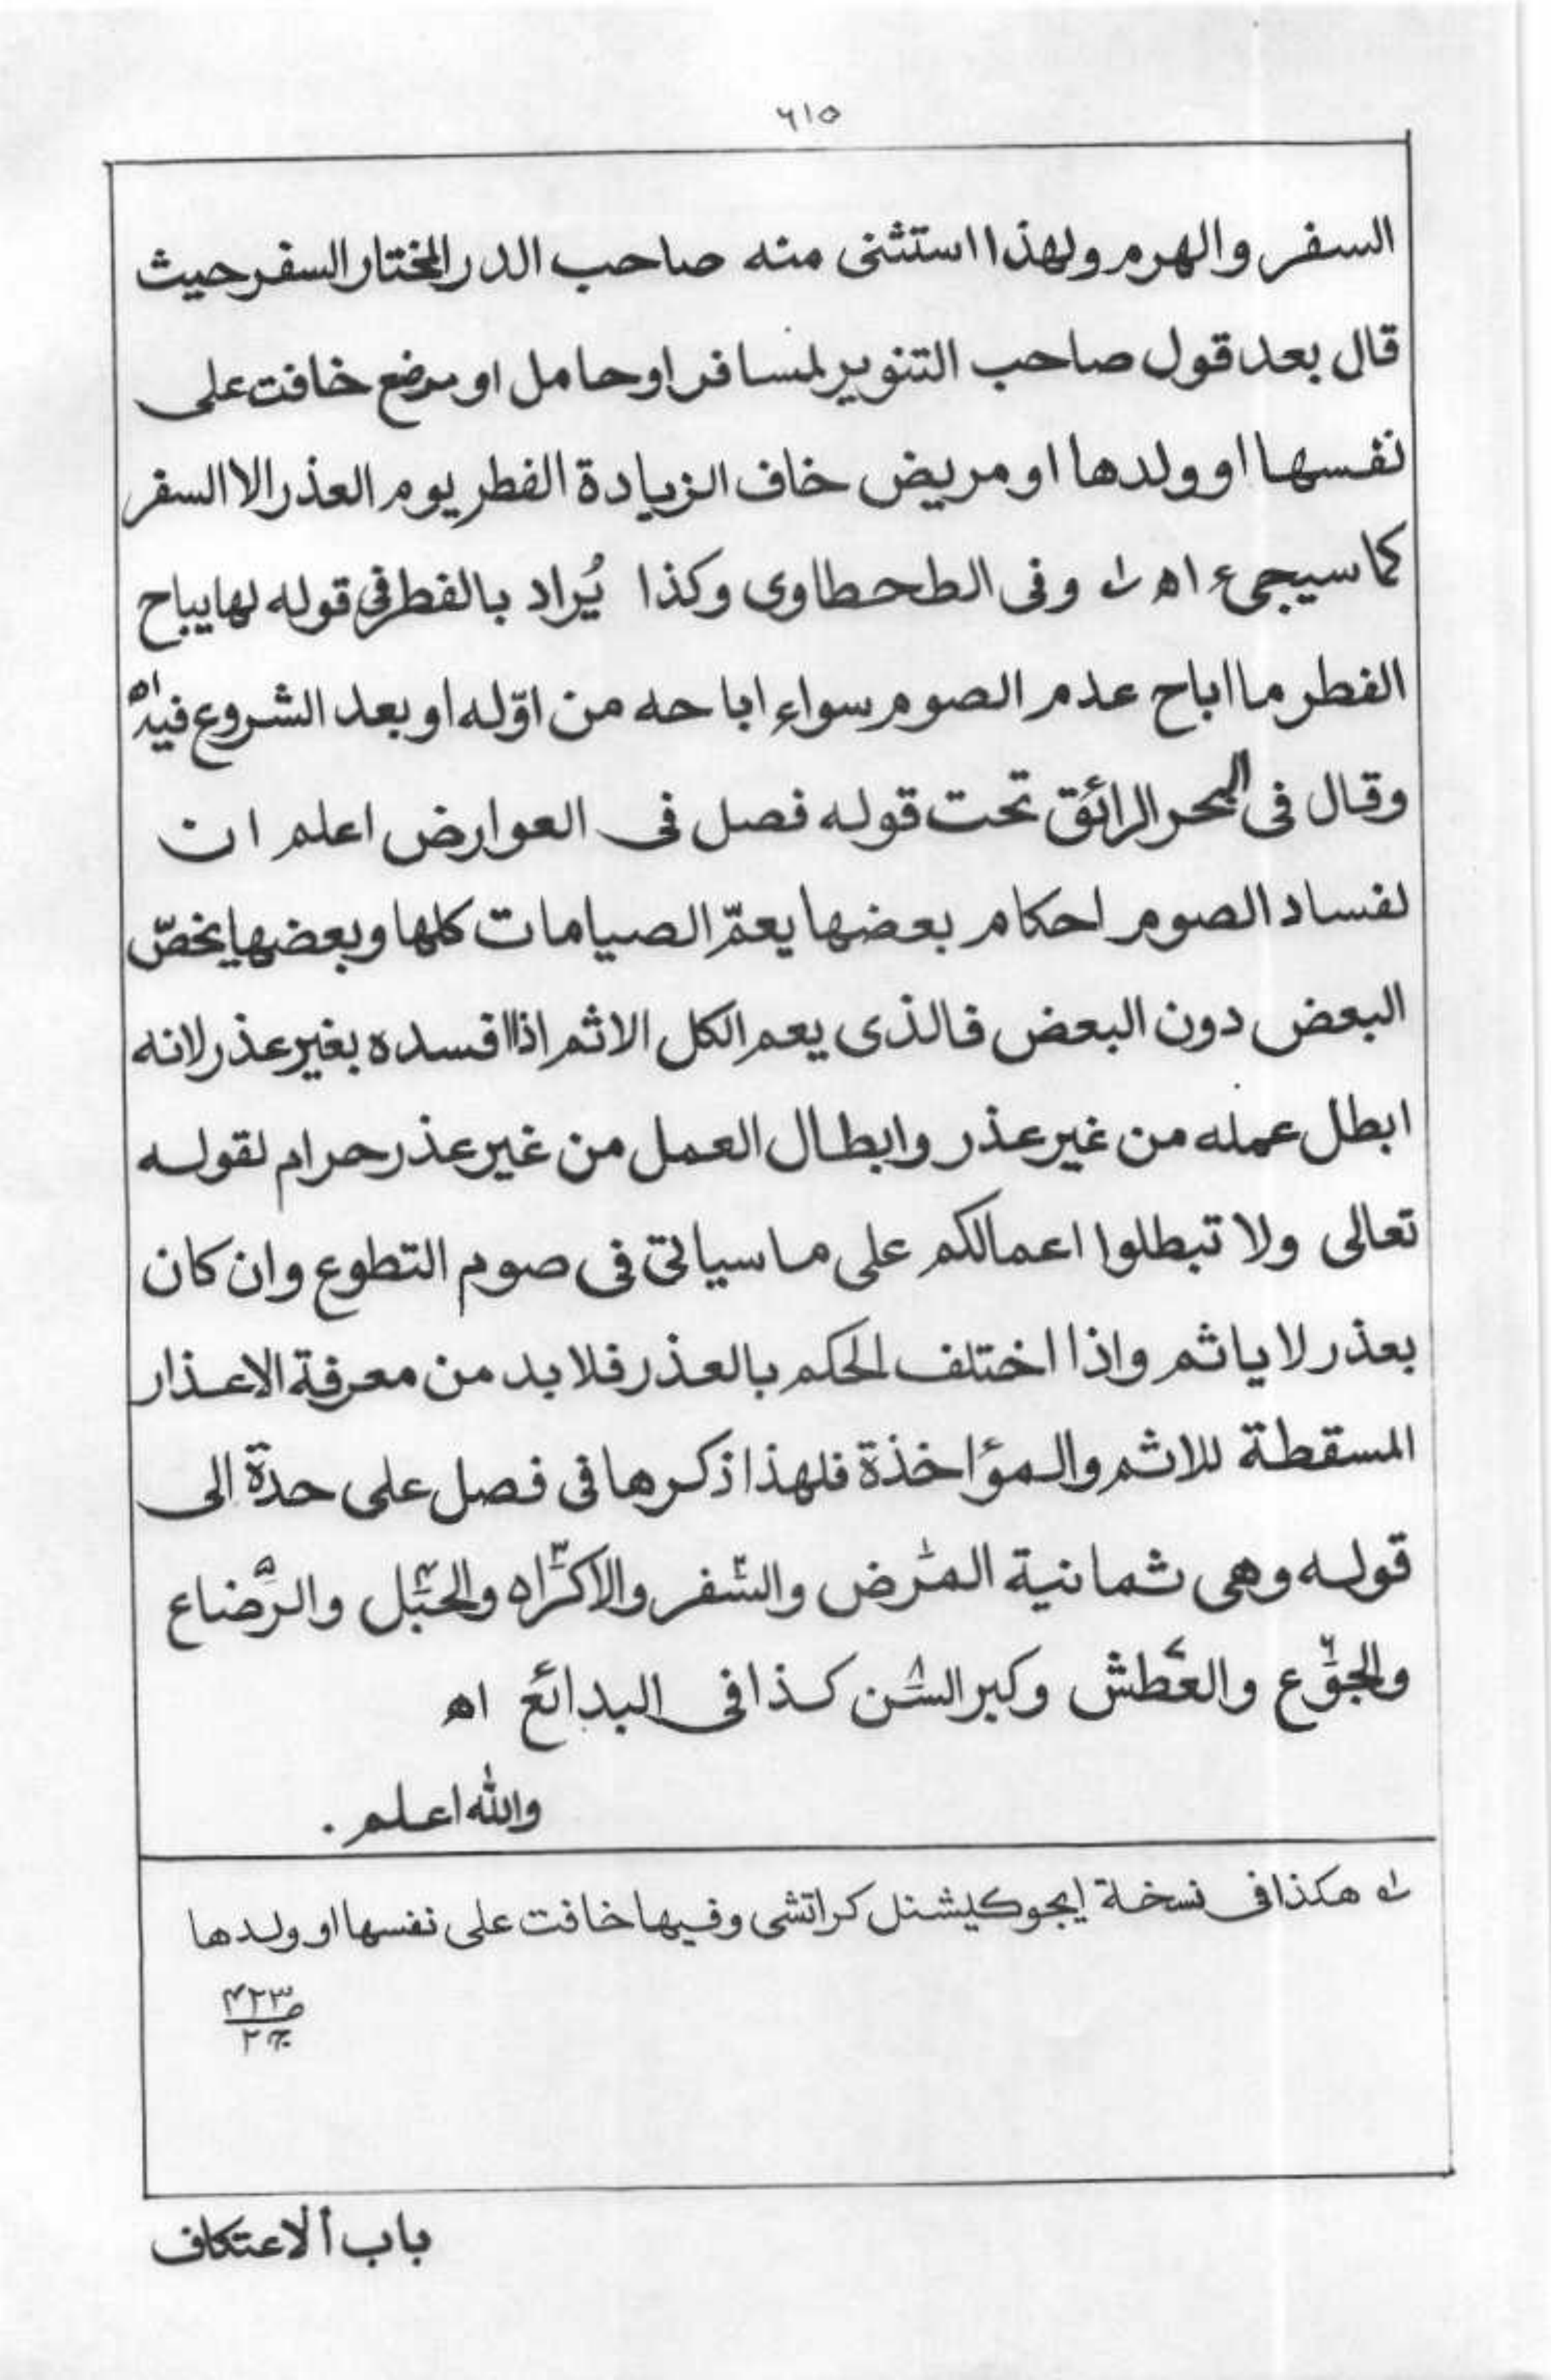 ٦١٥
السفر والهرم ولهذا استثنى منه صاحب الدر المختار السفر حيث
قال بعد قول صاحب التنوير لمسافر او حامل او مرضع خافت على
نفسها او ولدها او مريض خاف الزيادة الفطر يوم العذر الا السفر
كما سيجىء اه ؎۱ وفى الطحطاوى وكذا يُراد بالفطر فى قوله لها يباح
الفطر ما اباح عدم الصوم سواء اباحه من اوّله او بعد الشروع فيه اه
وقال فى البحر الرائق تحت قوله فصل فى العوارض اعلم ان
لفساد الصوم احكام بعضها يعمّ الصيامات كلها وبعضها يخصّ
البعض دون البعض فالذى يعم الكل الاثم اذا افسده بغير عذر لانه
ابطل عمله من غير عذر وابطال العمل من غير عذر حرام لقوله
تعالى ولا تبطلوا اعمالكم على ما سياتى فى صوم التطوع وان كان
بعذر لا ياثم واذا اختلف الحكم بالعذر فلا بد من معرفة الاعذار
المسقطة للاثم والمؤاخذة فلهذا ذكرها فى فصل على حدة الى
قوله وهى ثمانية المرض۱ والسفر۲ والاكراه۳ والحبل۴ والرضاع۵
والجوع۶ والعطش۷ وكبر السن۸ كذا فى البدائع اه
والله اعلم .
؎۱ هكذا فى نسخة ايجوكيشنل كراتشى وفيها خافت على نفسها او ولدها
ص۴۲۳
ج۲
باب ألاعتكاف